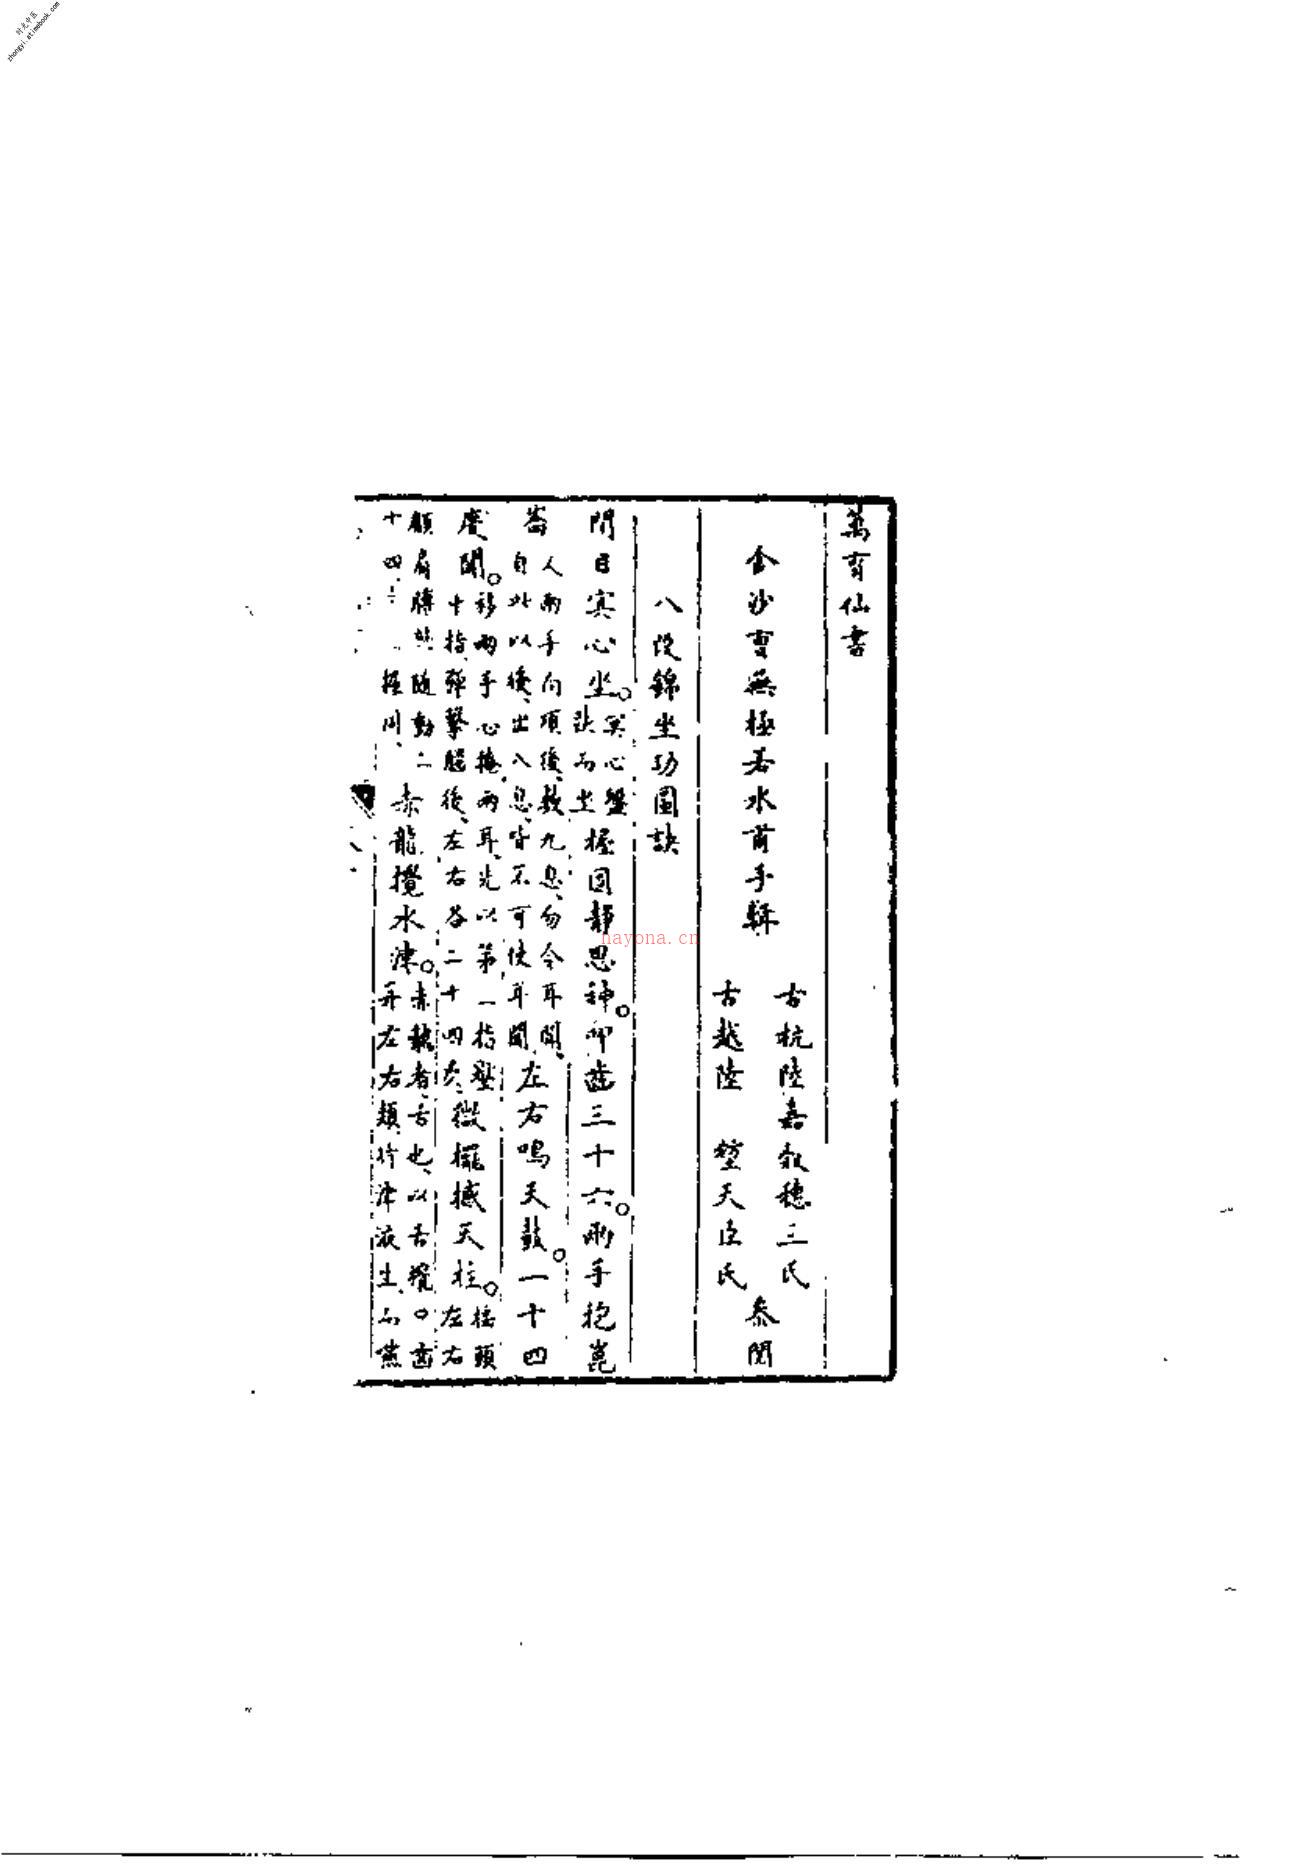 时光中医
zhongyi.atimebook.com
萬育仙書
金沙曹無極若水甫手輯
古杭陸嘉穀穗三氏
古越陸 堃天臣氏
叅閱
八段錦坐功圖訣
閉目冥心坐。冥心盤趺而坐握固靜思神。叩齒三十六。兩手抱崑
崙人兩手向項後、數九息、勿令耳聞、自此以後、出入息、皆不可使耳聞、左右鳴天鼓。一十四
度聞。移兩手心掩兩耳、先以第一指壓十指、彈擊腦後、左右各二十四次、微擺撼天柱。搖頭左右
顧肩膊 隨動二十四 握固、赤龍攪水津。赤龍者、舌也、以舌攪口齒并左右頰、待津液生、而嚥
hayona.cn